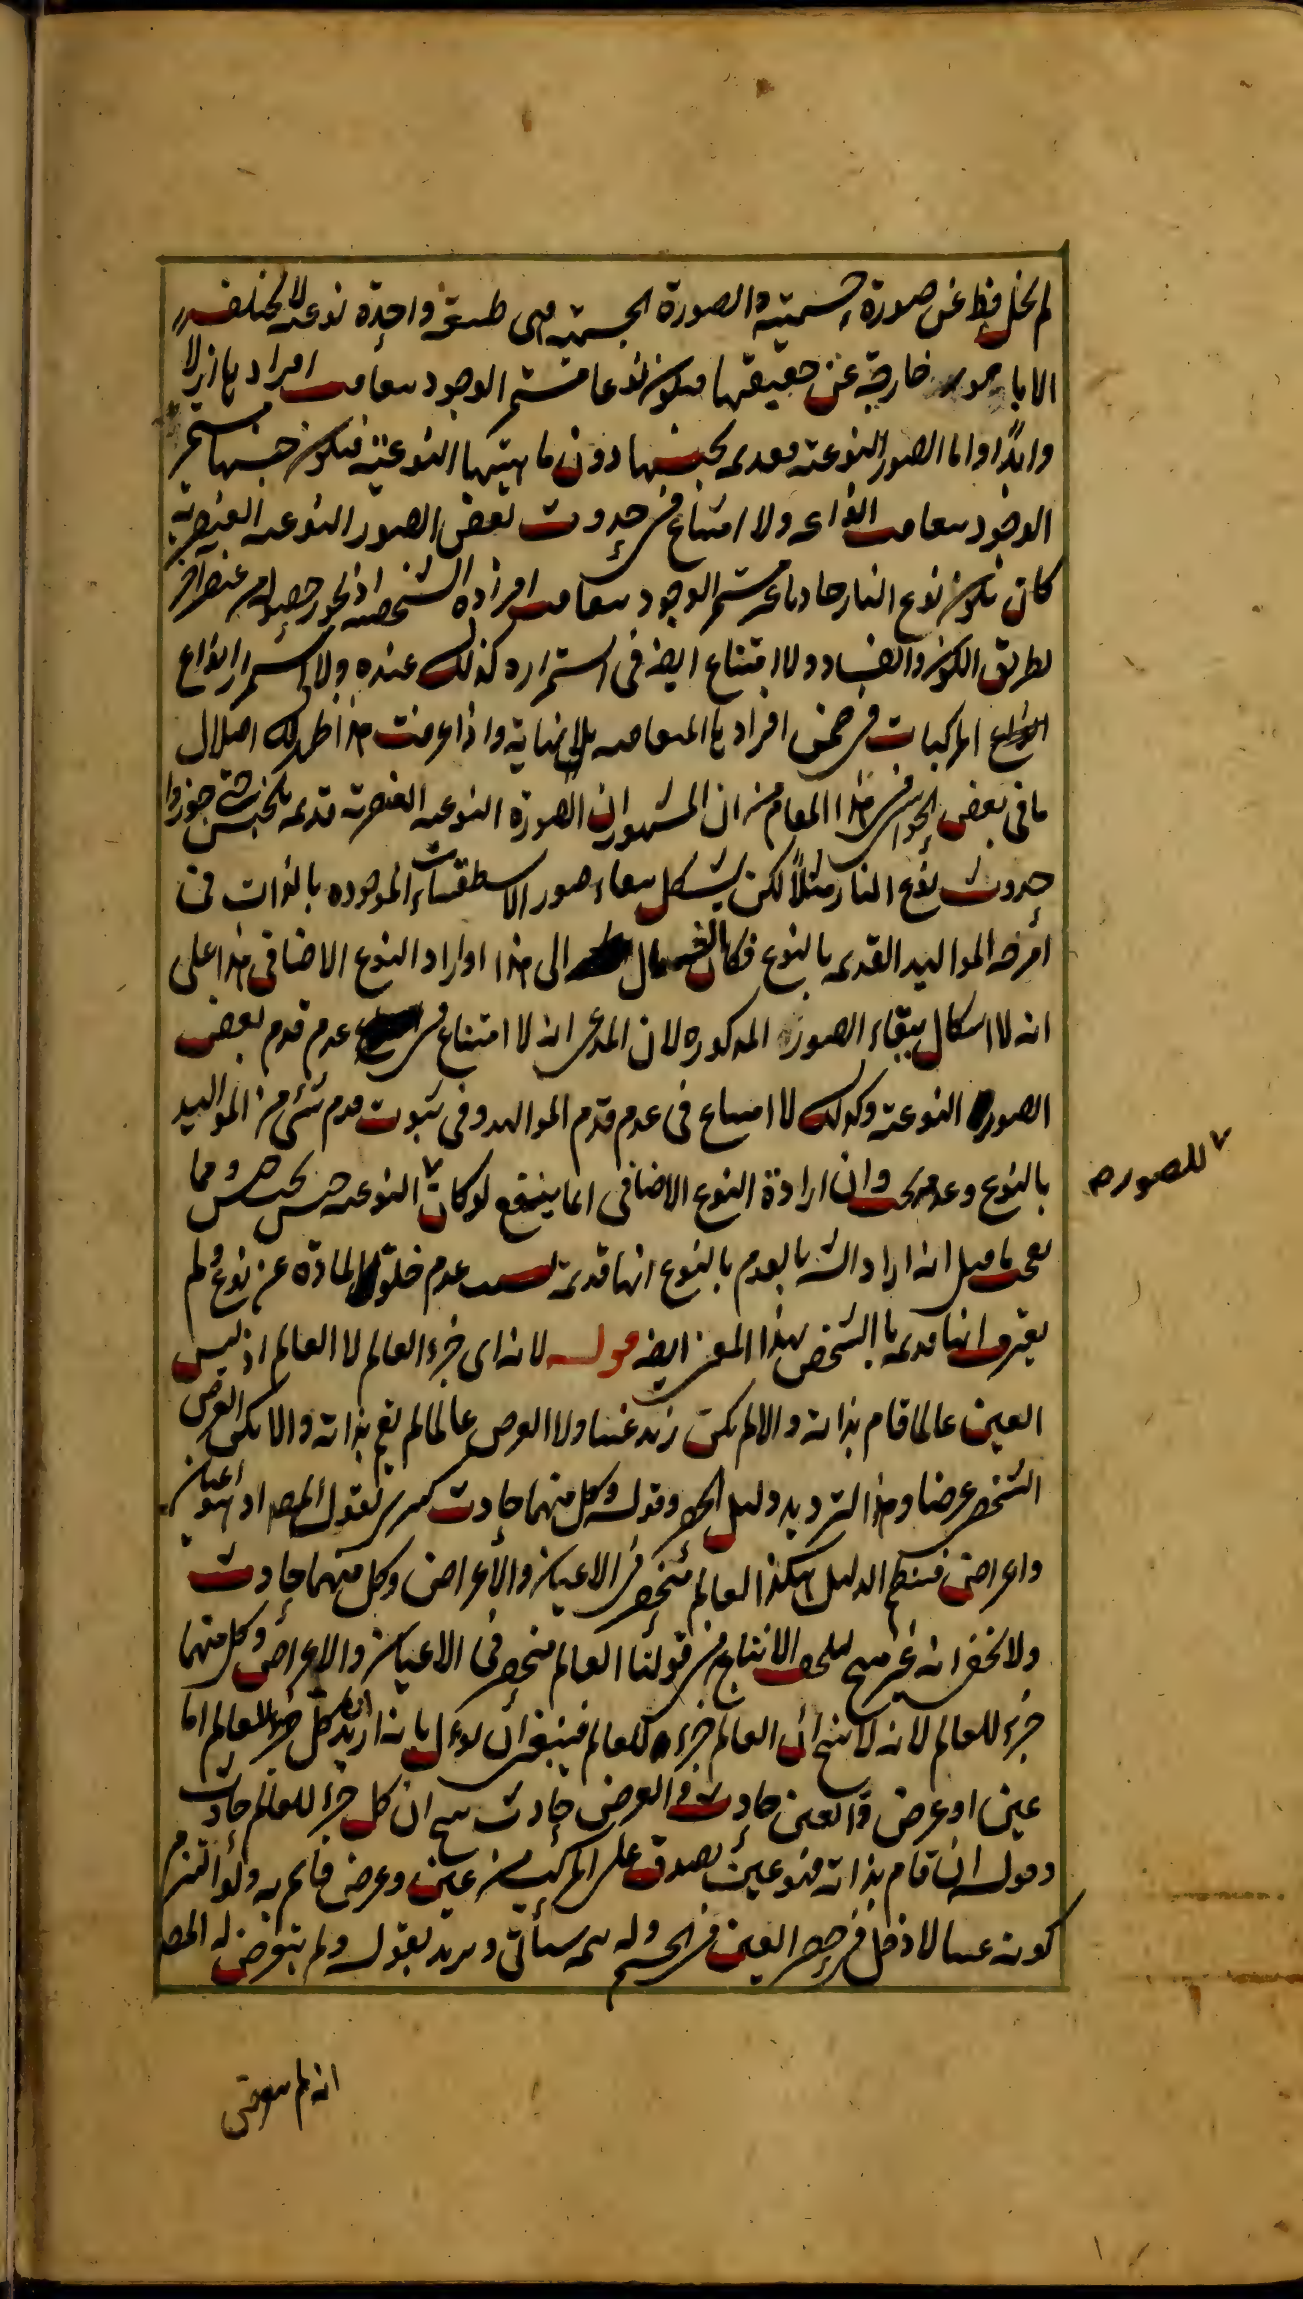 لم يخل قط عن صورة جسمية والصورة الجسمية هي طبيعة واحدة نوعية لا تختلف
الا بامور خارجة عن حقيقتها فيكون نوعها مستمر الوجود بتعاقب افرادها ازلا
وابدًا واما الصور النوعية فقديمة بجنسها دون ماهيتها النوعية فيكون جنسها مستمر
الوجود بتعاقب انواعه ولا امتناع في حدوث بعض الصور النوعية العنصرية
كان يكون نوع النار حادثا غير مستمر الوجود بتعاقب افراده الشخصية اذ يجوز حصوله من عنصر آخر
بطريق الكون والفساد ولا امتناع ايضه في استمراره كذلك عنده ولا استمرار انواع
المركبات في ضمن افرادها المتعاقبه بلا نهاية واذا عرفت هذا ظهر لك اختلال
ما في بعض الحواشي في هذا المقام من ان المشهور ان الصورة النوعية العنصرية قديمة بالجنس حتى جوزوا
حدوث نوع النار مثلاً لكن يشكل ببقاء صور الاسطقسات الموجوده بالذات في
امزجه المواليد القديمه بالنوع فكان الشه مال الى هذا او اراد النوع الاضافي هذا على
انه لا اشكال ببقاء الصور المذكوره لان المدعى انه لا امتناع في عدم قدم بعض
الصور النوعية وكذلك لا امتناع في عدم قدم المواليد وفي ثبوت قدم شئ من المواليد
بالنوع وعدمه بحث وان ارادة النوع الاضافي انما ينفع لو كان ٧ النوعية جنس تحت جنس ومما
٧ للصور صح
يعجب ما قيل انه اراد الشه بالقدم بالنوع انها قديمة بسبب عدم خلو المادة عن نوع ولم
يعترف انها قديمة بالشخص بهذا المعنى ايضه قوله لانه اى جزء العالم لا العالم اذ ليس
العين عالما قام بذاته والا لم يكن زيد عينا ولا العرض عالما لم يقم بذاته والا لم يكن العرض
الشخصى عرضا وهذا الترديد دليل الحصر وقوله وكل منهما حادث كبرى لقول المصه اذ هو اعيان
واعراض فنظم الدليل هكذا العالم منحصر في الاعيان والاعراض وكل منهما حادث
ولا يخفى انه غير منتج الانتاج من قولنا العالم منحصر في الاعيان والاعراض وكل منهما
جزء للعالم لانه لا ينتج ان العالم جزء للعالم فينبغى ان يؤول بانه اريد ان كل جزء للعالم اما
عين او عرض والعين حادث والعرض حادث ينتج ان كل جزء للعالم حادث
وقوله ان قام بذاته فهو عين يصدق على المركب من عين وعرض قائم به ولو التزم
كونه عينا لا دخل في حصر العين في الجسم وله تتمه ستأتى ويريد بقوله ولم يتعرض له المصه
انه لم يتعرض